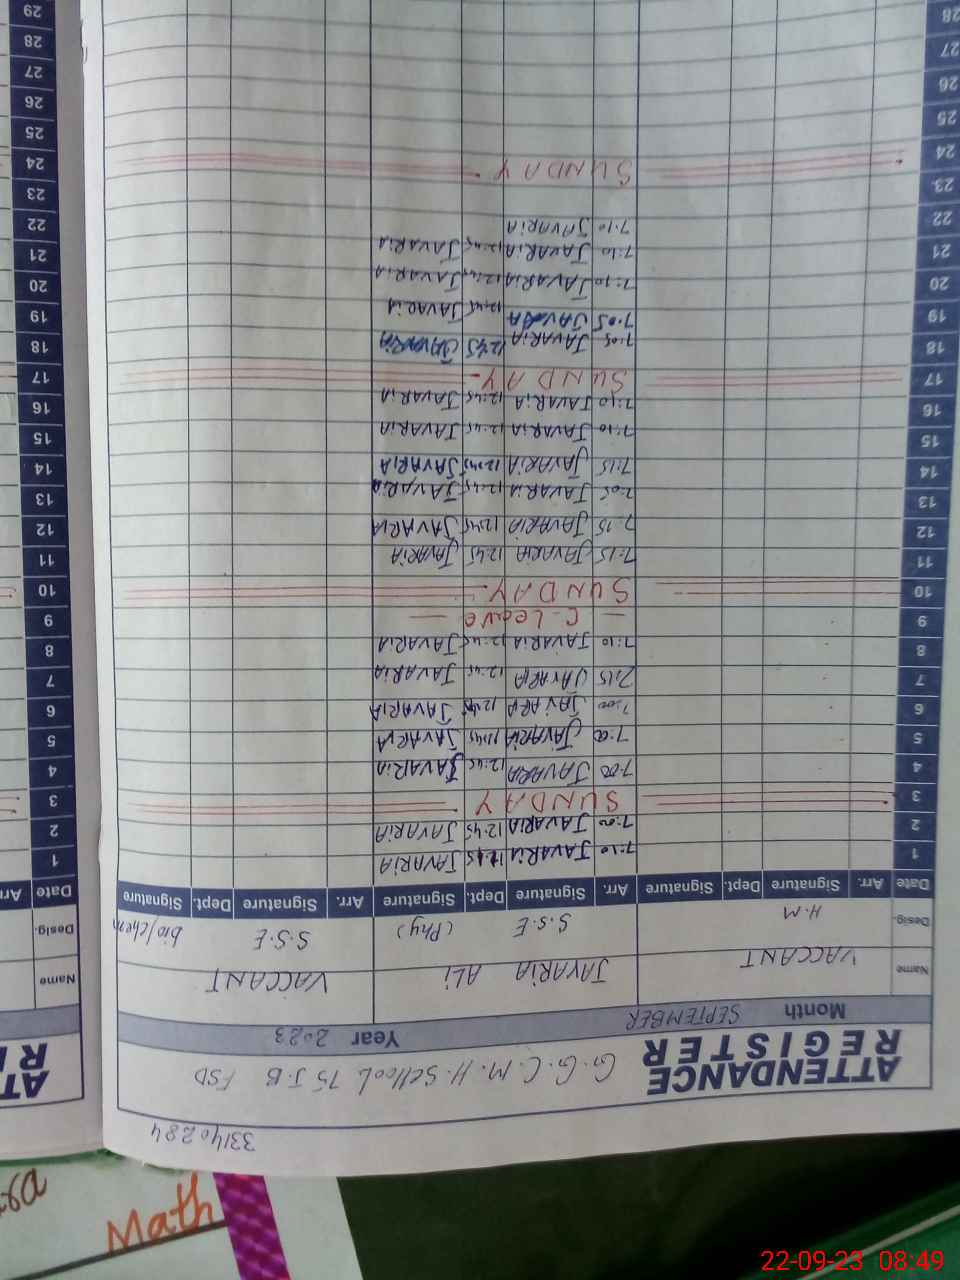 33140284
ATTENDANCE REGISTER G.G.C.M.H. School 75 J.B FSD
Month SEPTEMBER Year 2023
Name VACCANT JAVARIA ALi VACCANT
Desig. H.M S.S.E (Phy) S.S.E bio/chem
Date Arr. Signature Dept. Signature Arr. Signature Dept. Signature Arr. Signature Dept. Signature
1 7:10 JAVARiA 12:45 JAVARiA
2 7:00 JAVARiA 12:45 JAVARiA
3 SUNDAY
4 7:00 JAVARiA 12:45 JAVARiA
5 7:00 JAVARiA 12:45 JAVARiA
6 7:00 JAVARiA 12:45 JAVARiA
7 7:15 JAVARiA 12:45 JAVARiA
8 7:10 JAVARiA 12:45 JAVARiA
9 — C-Leave —
10 SUNDAY
11 7:15 JAVARiA 12:45 JAVARiA
12 7:15 JAVARiA 12:45 JAVARiA
13 7:05 JAVARiA 12:45 JAVARiA
14 7:15 JAVARiA 12:45 JAVARiA
15 7:10 JAVARiA 12:45 JAVARiA
16 7:10 JAVARiA 12:45 JAVARiA
17 SUNDAY
18 7:05 JAVARiA 12:45 JAVARiA
19 7:05 JAVARiA 12:45 JAVARiA
20 7:10 JAVARiA 12:45 JAVARiA
21 7:10 JAVARiA 12:45 JAVARiA
22 7:10 JAVARiA
23
24 SUNDAY
25
26
27
28
29
Name
Desig.
Date
1
2
3
4
5
6
7
8
9
10
11
12
13
14
15
16
17
18
19
20
21
22
23
24
25
26
27
28
29
Math
22-09-23 08:49